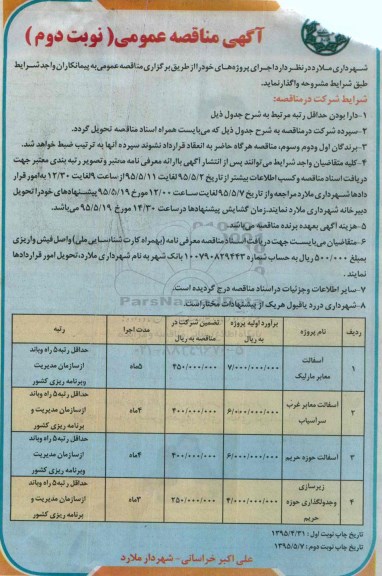 آگهی مناقصه عمومی( نوبت دوم )
شهرداری ملارد در نظر دارد اجرای پروژه‌های خود را از طریق برگزاری مناقصه عمومی به پیمانکاران واجد شرایط
طبق شرایط مشروحه واگذار نماید.
شرایط شرکت در مناقصه:
۱-دارا بودن حداقل رتبه مرتبط به شرح جدول ذیل
۲-سپرده شرکت در مناقصه به شرح جدول ذیل که می‌بایست همراه اسناد مناقصه تحویل گردد.
۳-برندگان اول ودوم وسوم، مناقصه هرگاه حاضر به انعقاد قرارداد نشوند سپرده آنها به ترتیب ضبط خواهد شد.
۴-کلیه متقاضیان واجد شرایط می‌توانند پس از انتشار آگهی با ارائه معرفی نامه معتبر و تصویر رتبه بندی معتبر جهت
دریافت اسناد مناقصه و کسب اطلاعات بیشتر از تاریخ ۹۵/۵/۲ لغایت ۹۵/۵/۱۱ از ساعت ۹ لغایت ۱۲/۳۰ به امور قرار
دادها شهرداری ملارد مراجعه و از تاریخ ۹۵/۵/۷ لغایت ساعت ۱۲/۰۰ مورخ ۹۵/۵/۱۹ پیشنهادهای خود را تحویل
دبیرخانه شهرداری ملارد نمایند.زمان گشایش پیشنهادها در ساعت ۱۴/۳۰ مورخ ۹۵/۵/۱۹ می‌باشد.
۵-هزینه آگهی بعهده برنده مناقصه می‌باشد.
۶-متقاضیان می‌بایست جهت دریافت اسناد مناقصه معرفی نامه (بهمراه کارت شناسایی ملی) واصل فیش واریزی
بمبلغ ۵۰۰/۰۰۰ ریال به حساب شماره ۱۰۰۷۹۰۸۲۹۴۴۳ بانک شهر به نام شهرداری ملارد، تحویل امور قراردادها
نمایند .
۷-سایر اطلاعات وجزئیات در اسناد مناقصه درج گردیده است.
۸-شهرداری در رد یاقبول هریک از پیشنهادات مختار است.
ردیف نام پروژه برآورد اولیه پروژه به ریال تضمین شرکت در مناقصه به ریال مدت اجرا رتبه
۱ اسفالت معابر مارلیک ۷/۰۰۰/۰۰۰/۰۰۰ ۴۵۰/۰۰۰/۰۰۰ ۵ماه حداقل رتبه ۵ راه وباند از سازمان مدیریت وبرنامه ریزی کشور
۲ اسفالت معابر غرب سرآسیاب ۶/۰۰۰/۰۰۰/۰۰۰ ۴۰۰/۰۰۰/۰۰۰ ۴ماه حداقل رتبه ۵ راه وباند از سازمان مدیریت و برنامه ریزی کشور
۳ اسفالت حوزه حریم ۶/۰۰۰/۰۰۰/۰۰۰ ۴۰۰/۰۰۰/۰۰۰ ۴ماه حداقل رتبه ۵ راه وباند از سازمان مدیریت وبرنامه ریزی کشور
۴ زیرسازی وجدولگذاری حوزه حریم ۴/۰۰۰/۰۰۰/۰۰۰ ۲۵۰/۰۰۰/۰۰۰ ۳ماه حداقل رتبه ۵ راه وباند از سازمان مدیریت و برنامه ریزی کشور
تاریخ چاپ نوبت اول : ۱۳۹۵/۴/۳۱
تاریخ چاپ نوبت دوم : ۱۳۹۵/۵/۷
علی اکبر خراسانی- شهردار ملارد